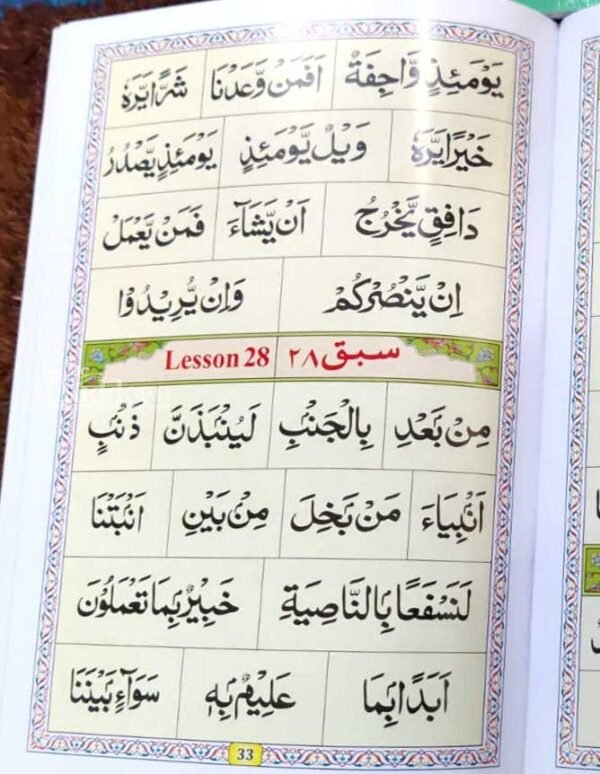 يَوْمَئِذٍ وَّاجِفَةٌ اَفَمَنْ وَّعَدْنَا شَرًّا يَّرَهٗ
خَيْرًا يَّرَهٗ وَيْلٌ يَّوْمَئِذٍ يَوْمَئِذٍ يَّصْدُرُ
دَافِقٍ يَّخْرُجُ اَنْ يَّشَآءَ فَمَنْ يَّعْمَلْ
اِنْ يَّنْصُرْكُمْ وَاِنْ يُّرِيْدُوْا
سبق ۲۸ Lesson 28
مِنْۢ بَعْدِ بِالْجَنْۢبِ لَيُنْۢبَذَنَّ ذَنْۢبٍ
اَنْۢبِيَاءَ مَنْۢ بَخِلَ مِنْۢ بَيْنِ اَنْۢبَتْنَا
لَنَسْفَعًۢا بِالنَّاصِيَةِ خَبِيْرٌۢ بِمَا تَعْمَلُوْنَ
اَبَدًۢا بِمَا عَلِيْمٌۢ بِهٖ سَوَآءٍۢ بَيْنَنَا
33